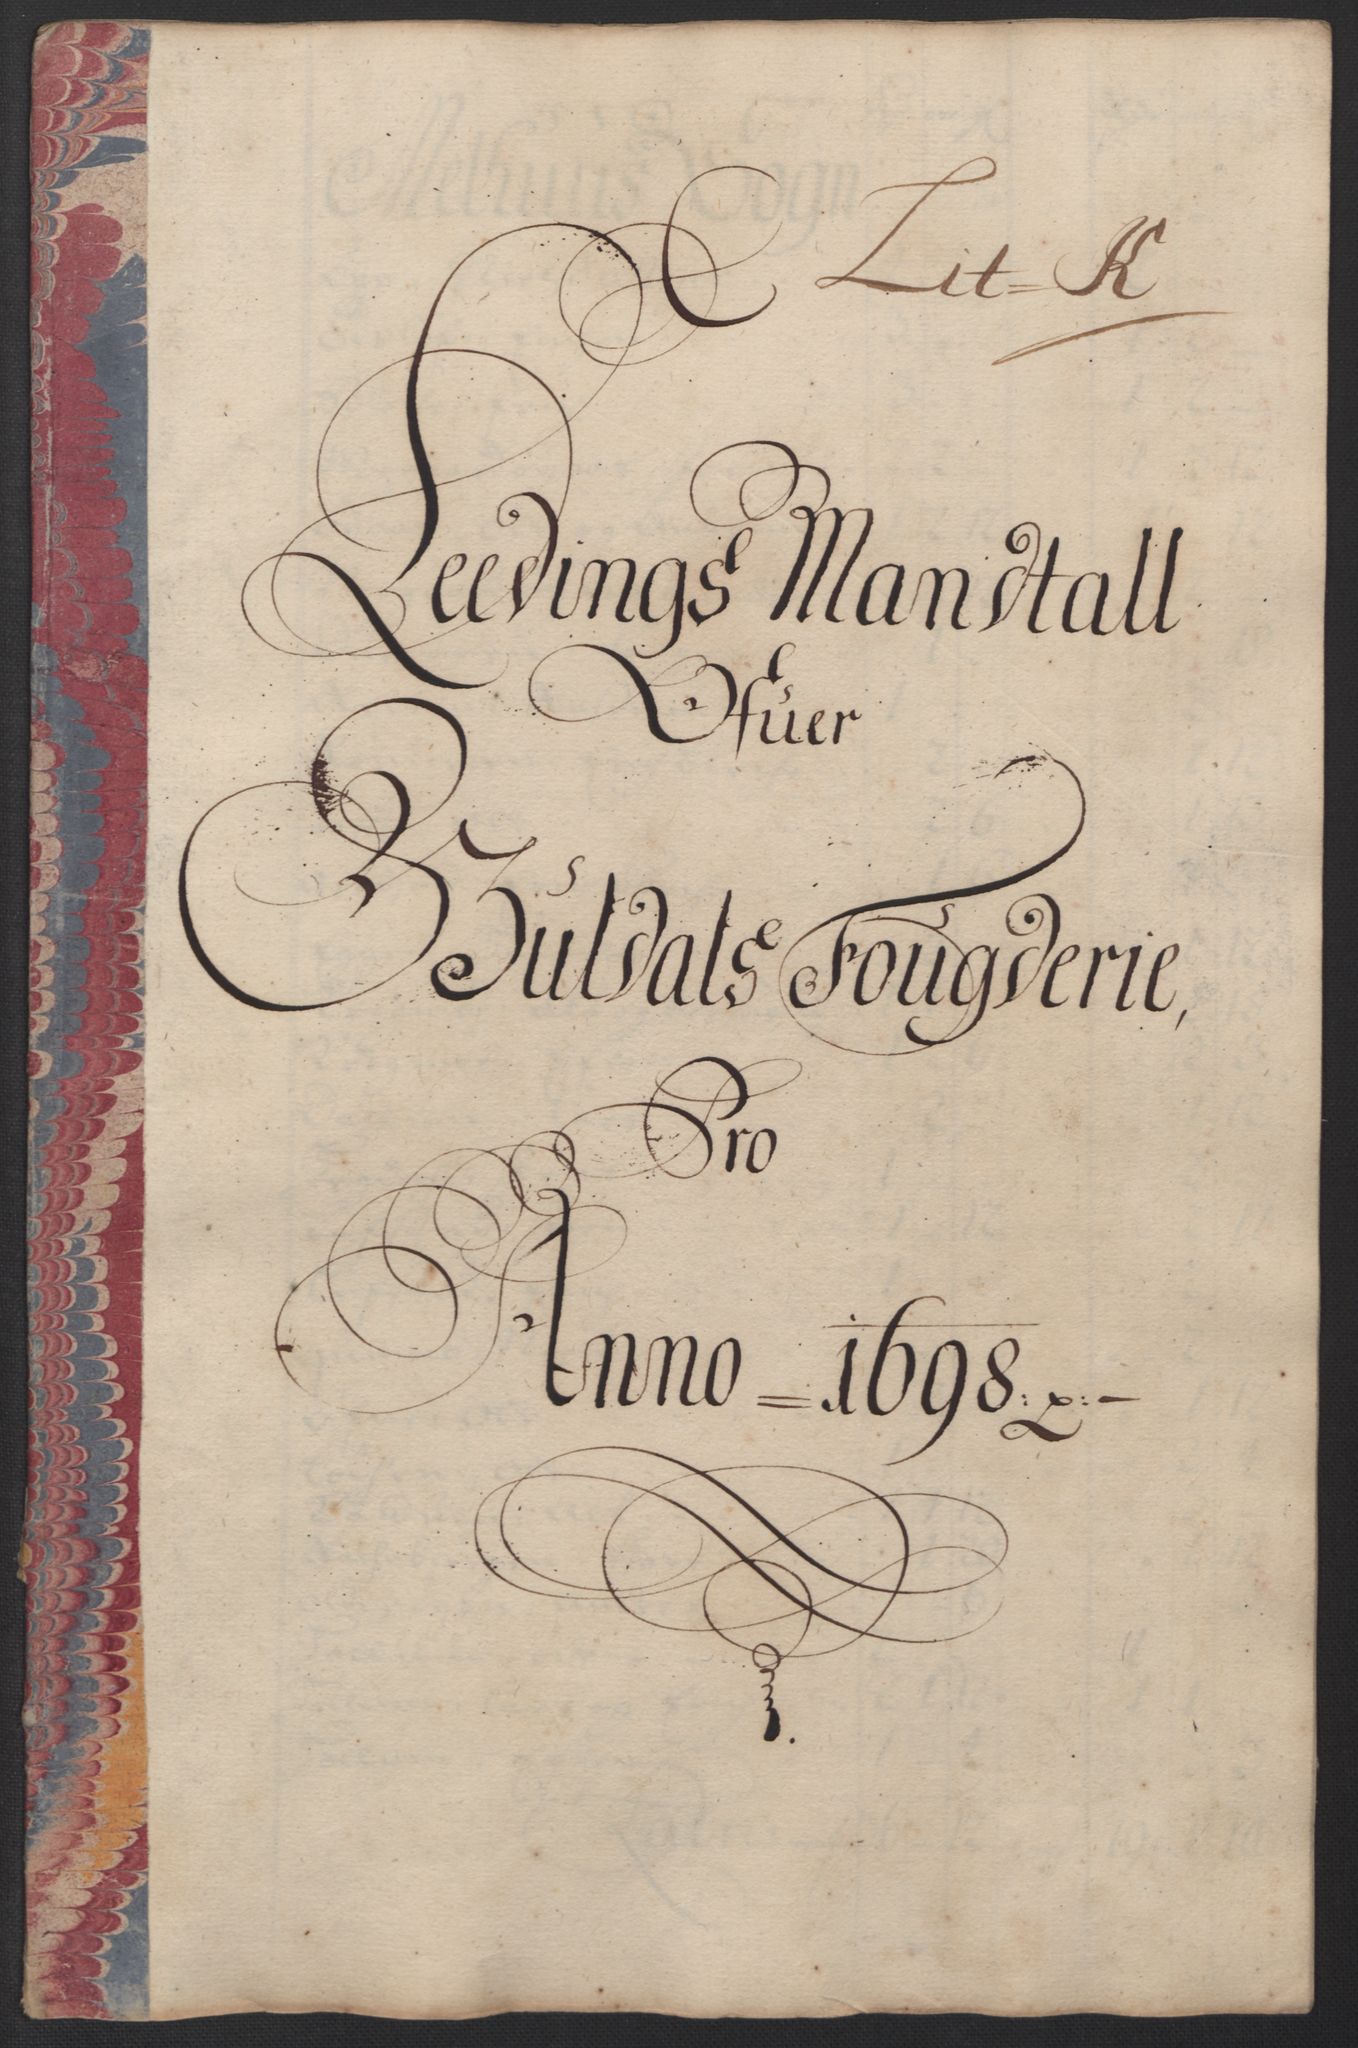 Lit= K
Leedings Mandtall
Ofuer
Guldals Fougderie,
Pro
Anno = 1698